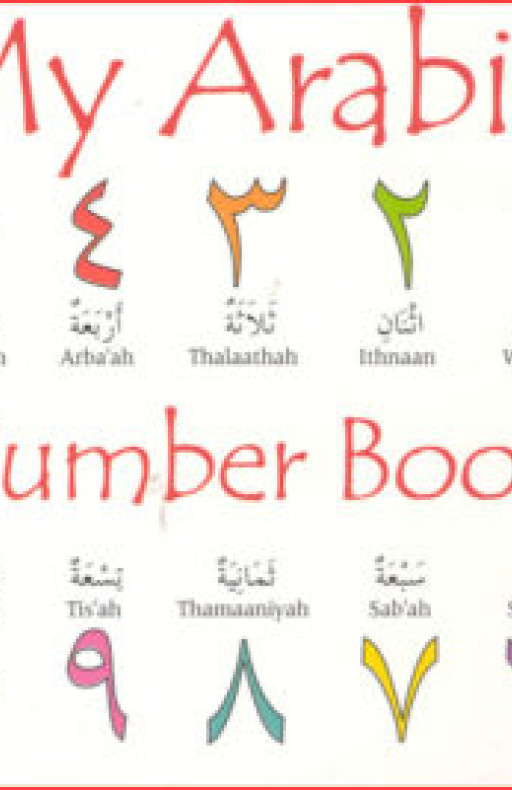 My Arabi
٤ ٣ ٢
اثْنَانِ ثَلَاثَةٌ أَرْبَعَةٌ
Arba'ah Thalaathah Ithnaan
umber Boo
سَبْعَةٌ ثَمَانِيَةٌ تِسْعَةٌ
Tis'ah Thamaaniyah Sab'ah
٩ ٨ ٧